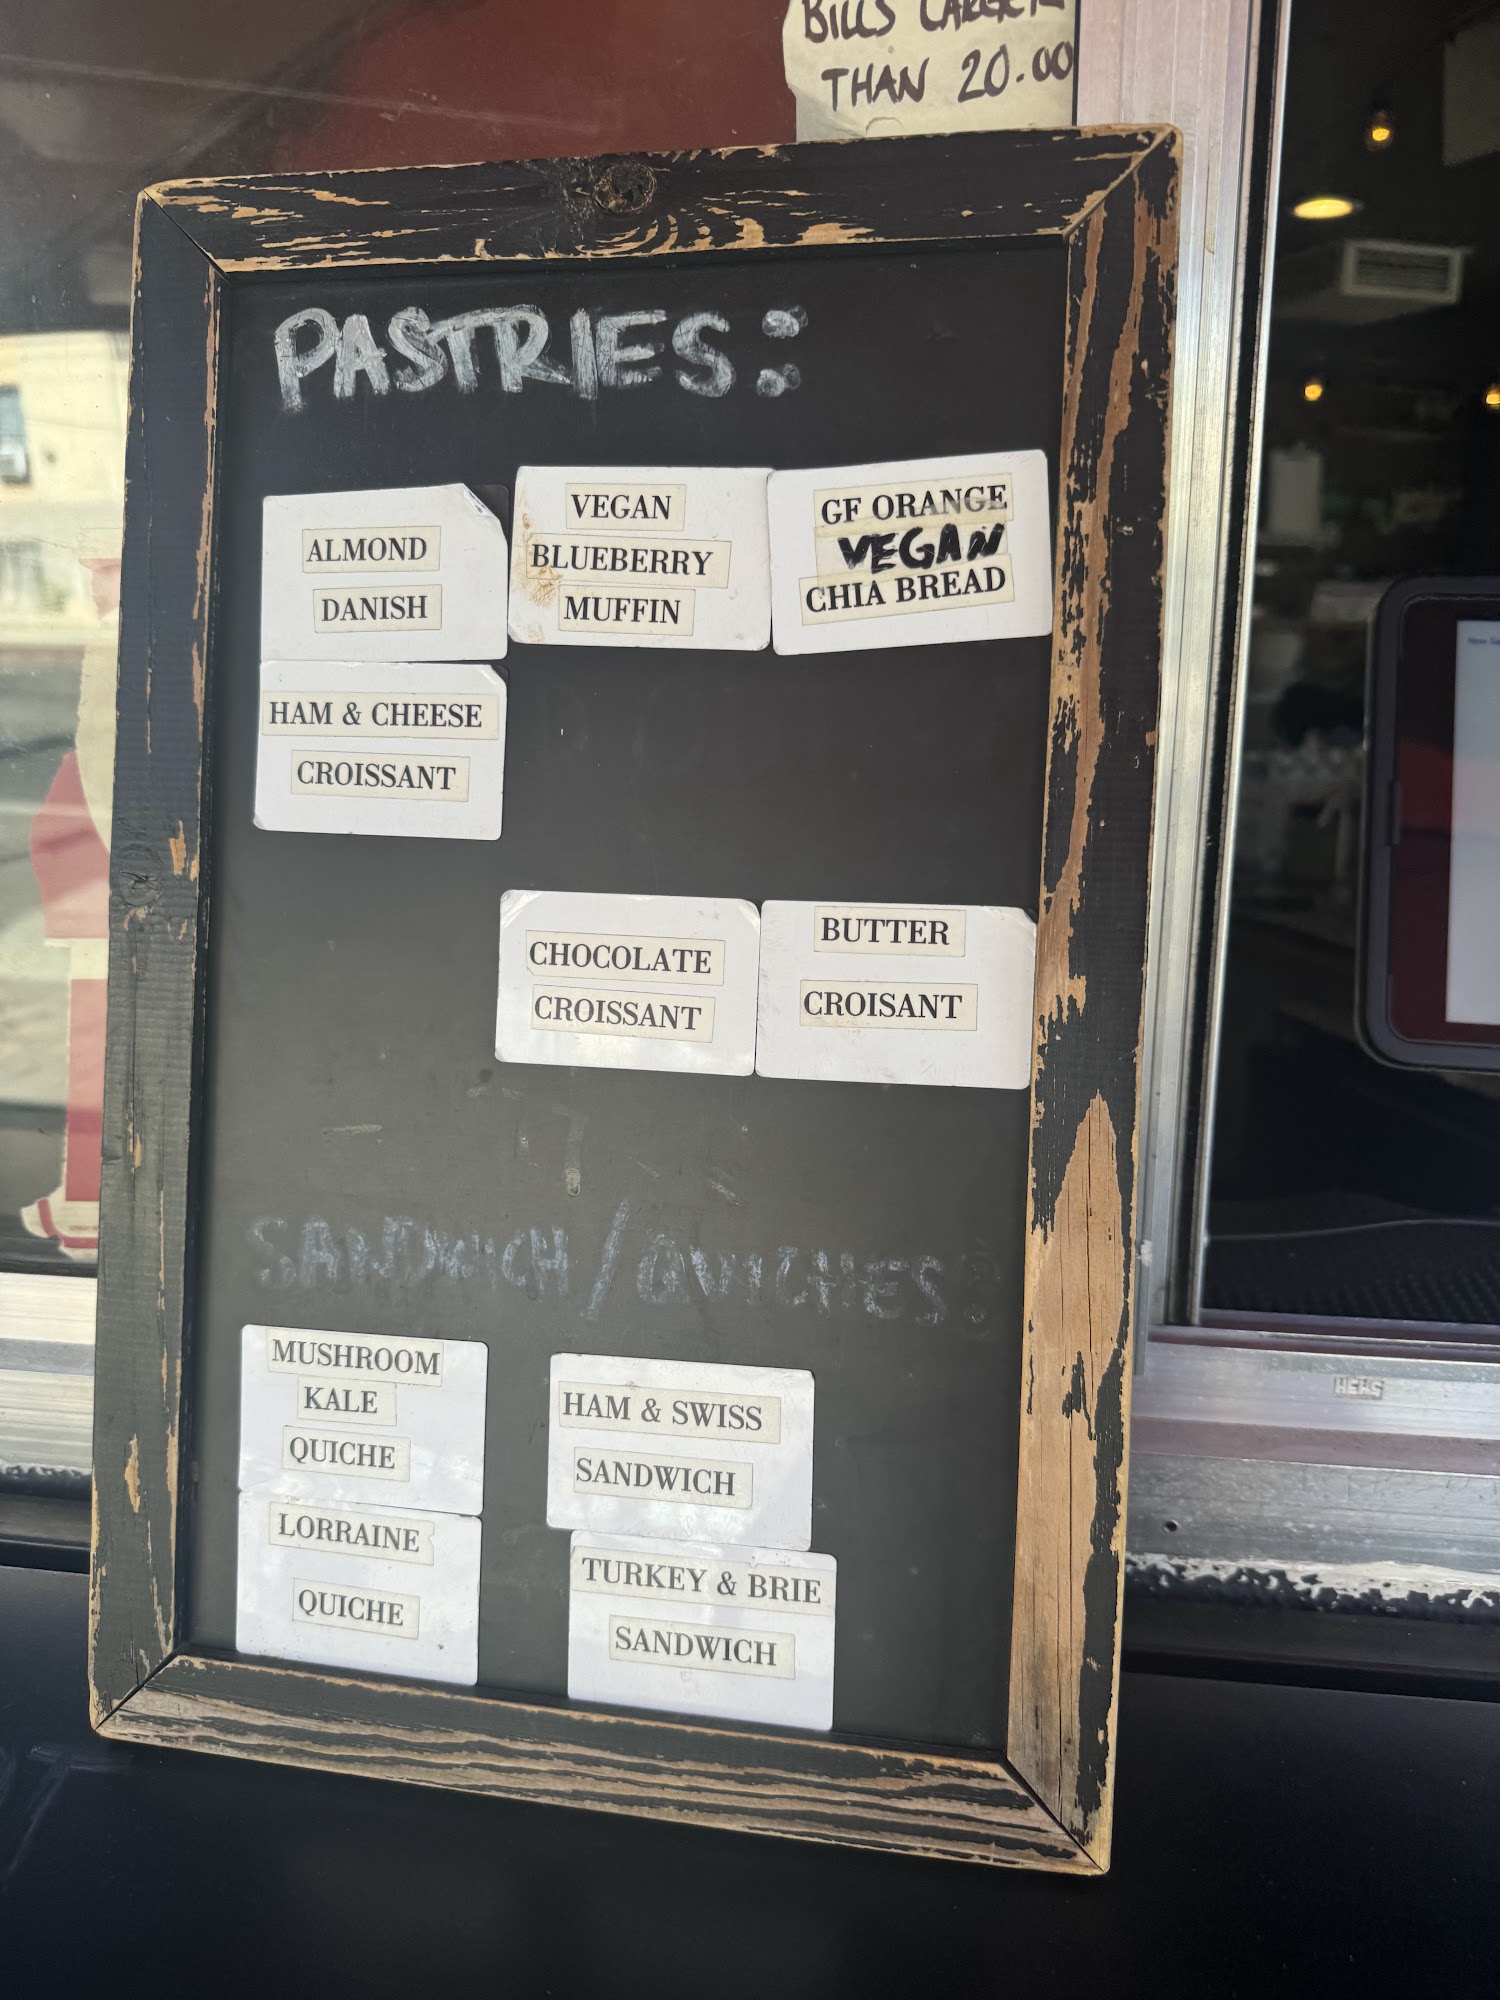 BILLS LARGER
THAN 20.00
PASTRIES:
ALMOND
DANISH
VEGAN
BLUEBERRY
MUFFIN
GF ORANGE
VEGAN
CHIA BREAD
HAM & CHEESE
CROISSANT
CHOCOLATE
CROISSANT
BUTTER
CROISANT
SANDWICH/QUICHES:
MUSHROOM
KALE
QUICHE
HAM & SWISS
SANDWICH
LORRAINE
QUICHE
TURKEY & BRIE
SANDWICH